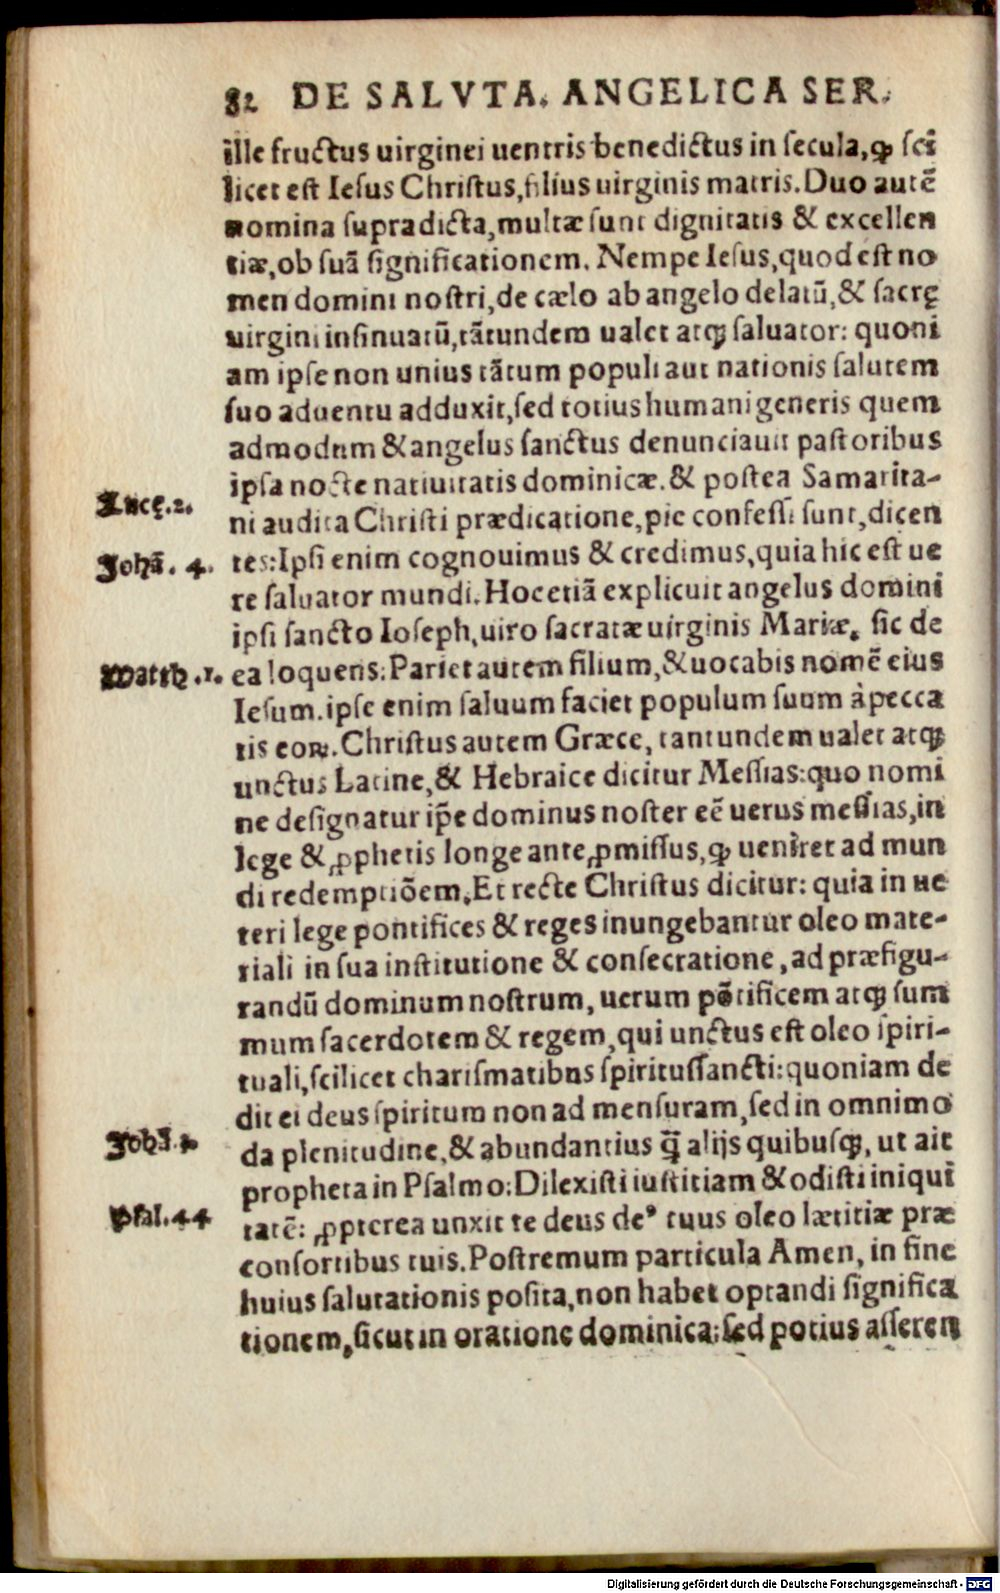 82 DE SALVTA. ANGELICA SER.
ille fructus uirginei uentris benedictus in ſecula, ꝙ ſci
licet eſt Ieſus Chriſtus, filius uirginis matris. Duo autē
nomina ſupradicta, multæ ſunt dignitatis & excellen
tiæ, ob ſuā ſignificationem. Nempe Ieſus, quod eſt no
men domini noſtri, de cælo ab angelo delatū, & ſacrę
uirgini inſinuatū, tātundem ualet atqꝫ ſaluator: quoni
am ipſe non unius tātum populi aut nationis ſalutem
ſuo aduentu adduxit, ſed totius humani generis quem
admodum & angelus ſanctus denunciauit paſtoribus
ipſa nocte natiuitatis dominicæ. & poſtea Samarita-
Lucę. 2.
ni audita Chriſti prædicatione, pie confeſſi ſunt, dicen
Johā. 4.
tes: Ipſi enim cognouimus & credimus, quia hic eſt ue
re ſaluator mundi. Hoc etiā explicuit angelus domini
ipſi ſancto Ioſeph, uiro ſacratæ uirginis Mariæ. ſic de
Matth. 1.
ea loquens: Pariet autem filium, & uocabis nomē eius
Ieſum. ipſe enim ſaluum faciet populum ſuum à pecca
tis eoꝝ. Chriſtus autem Græce, tantundem ualet atqꝫ
unctus Latine, & Hebraice dicitur Meſſias: quo nomi
ne deſignatur ip̄e dominus noſter eē uerus meſſias, in
lege & ꝓphetis longe ante ꝓmiſſus, ꝙ ueniret ad mun
di redemptiōem. Et recte Chriſtus dicitur: quia in ue
teri lege pontifices & reges inungebantur oleo mate-
riali in ſua inſtitutione & conſecratione, ad præfigu-
randū dominum noſtrum, uerum pōtificem atqꝫ ſum
mum ſacerdotem & regem, qui unctus eſt oleo ſpiri-
tuali, ſcilicet chariſmatibus ſpirituſſancti: quoniam de
dit ei deus ſpiritum non ad menſuram, ſed in omnimo
Johā.
da plenitudine, & abundantius q̄ alijs quibuſqꝫ, ut ait
propheta in Pſalmo: Dilexiſti iuſtitiam & odiſti iniqui
Pſal. 44
tatē: ꝓpterea unxit te deus deꝰ tuus oleo lætitiæ præ
conſortibus tuis. Poſtremum particula Amen, in fine
huius ſalutationis poſita, non habet optandi ſignifica
tionem, ſicut in oratione dominica: ſed potius aſſeren
Digitalisierung gefördert durch die Deutsche Forschungsgemeinschaft - DFG